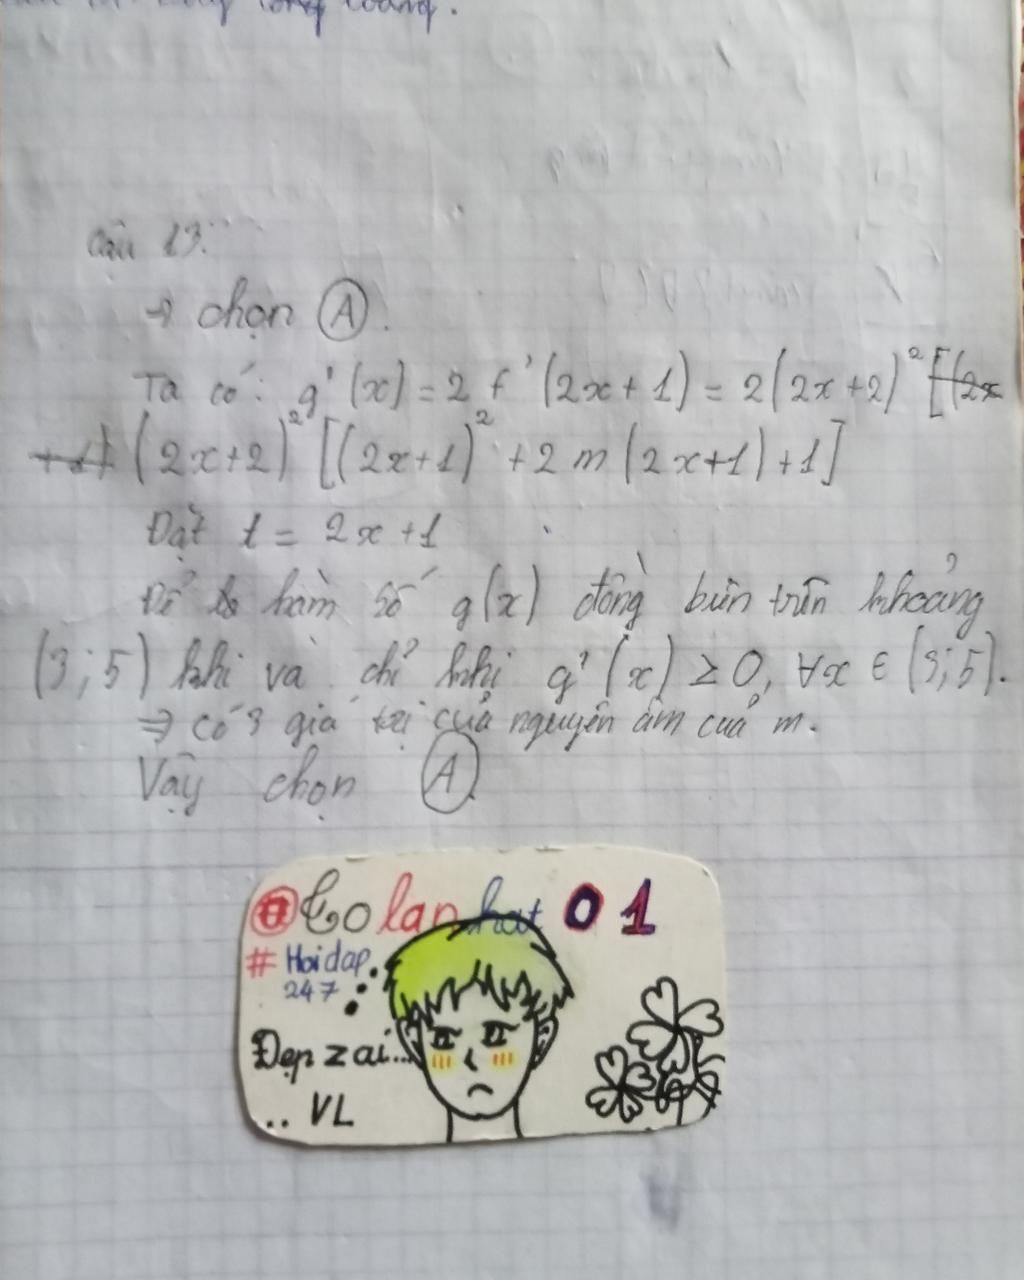 Câu 13:
→ chọn (A).
Ta có: g'(x) = 2 f'(2x+1) = 2(2x+2)² [(2x
+1) (2x+2)² [(2x+1)² + 2m(2x+1)+1]
Đặt t = 2x+1
Để hàm số g(x) đồng biến trên khoảng
(3;5) khi và chỉ khi g'(x) ≥ 0, ∀x ∈ (3;5).
⇒ có 3 giá trị của nguyên âm của m.
Vậy chọn (A).
lan hat 01
# Hoidap
247
Đẹp zai...
.. VL